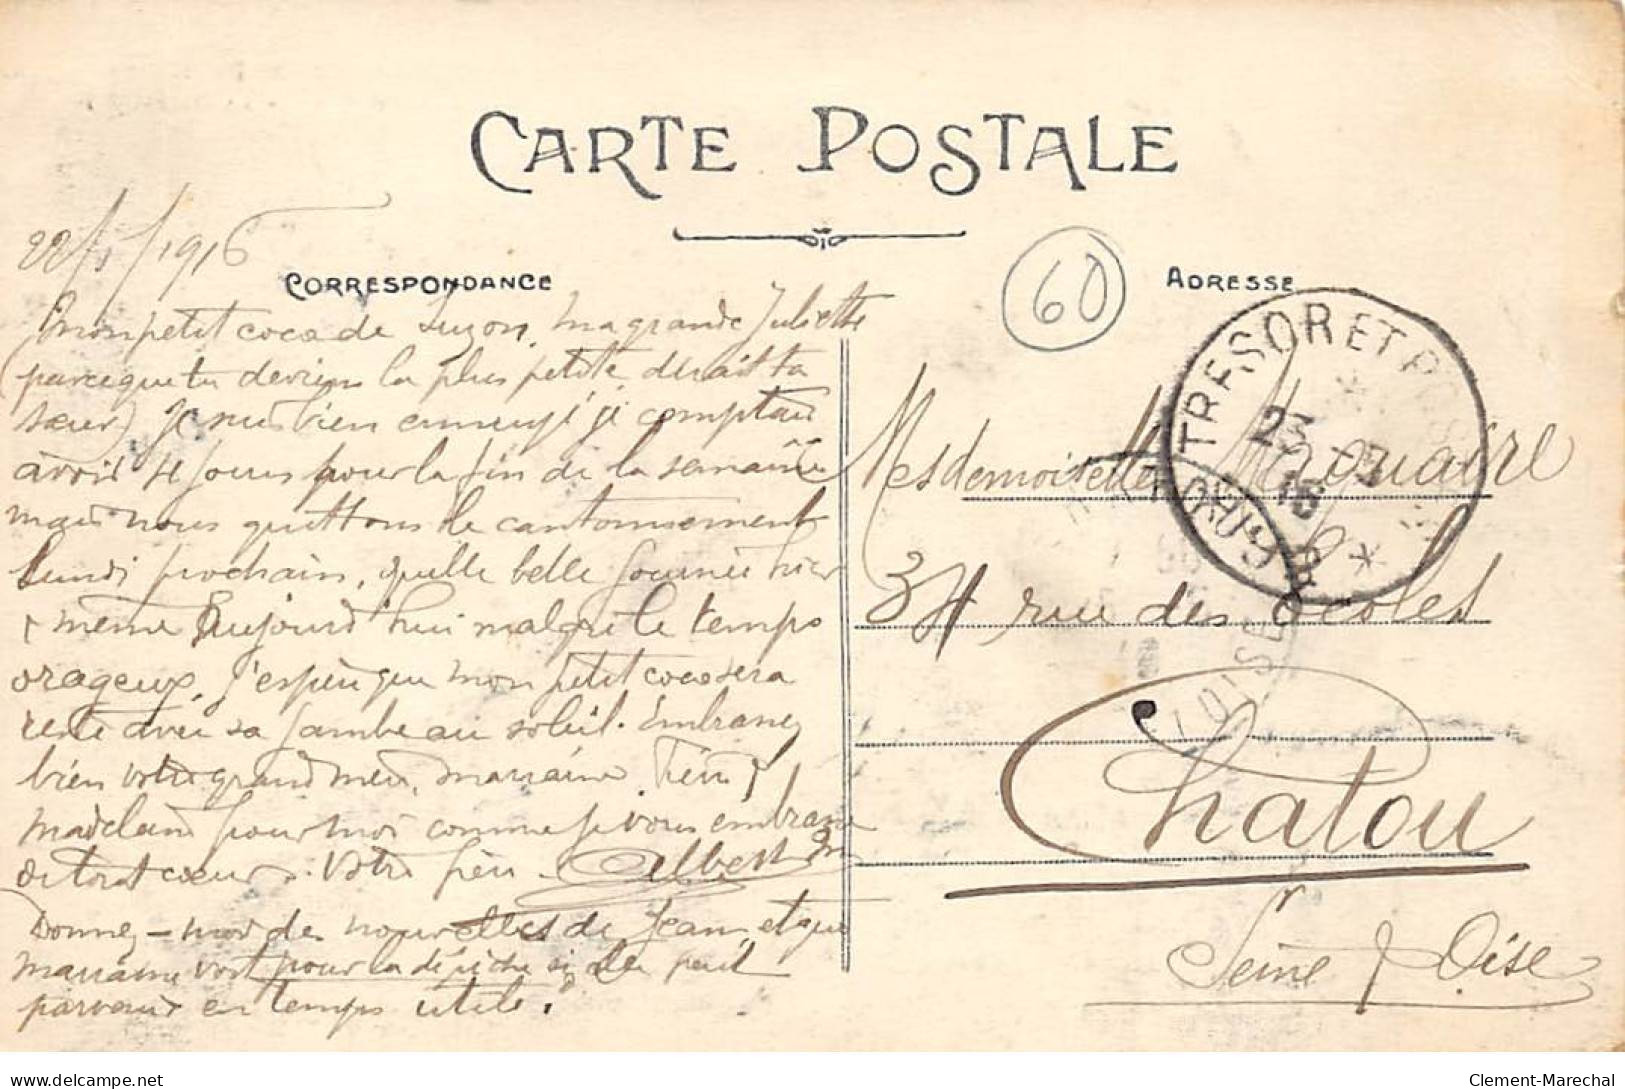 CARTE POSTALE
22/5/1916
CORRESPONDANCE
ADRESSE
60
TRESOR ET POSTES
23
15
mon petit coco de Suzon, ma grande Juliette
(parceque tu deviens la plus petite dirait ta
sœur) Je suis bien ennuyé je comptais
avoir 8 jours pour la fin de la semaine
mais nous quittons le cantonnement
Lundi prochain, quelle belle journée hier
& même Aujourd'hui malgré le temps
orageux, j'espère que mon petit coco sera
resté avec sa jambe au soleil. Embrassez
bien votre grand mère, marraine,
pour moi comme je vous embrasse
de tout cœur. Votre Albert
Donnez-moi des nouvelles de Jean, et que
marraine voit pour la dépêche si elle peut
parvenir en temps utile.
Mesdemoiselles
34 rue des écoles
Chatou
Seine & Oise
Clement-Marechal